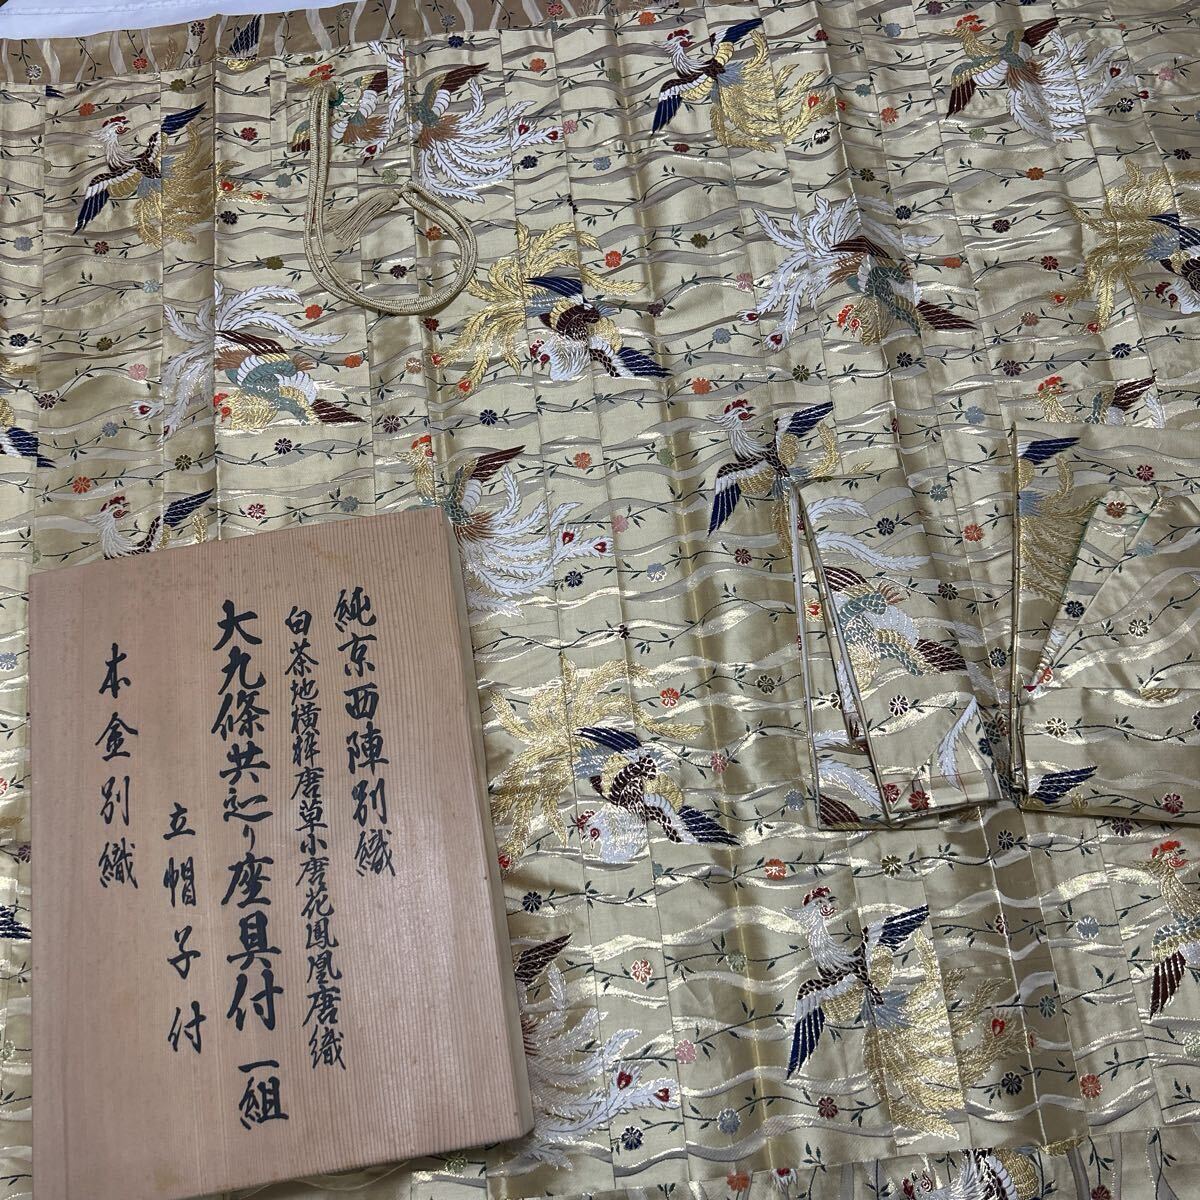 純京西陣別織
白茶地横絆唐草小唐花鳳凰唐織
大九條共巡り座具付 一組
立帽子付
本金別織